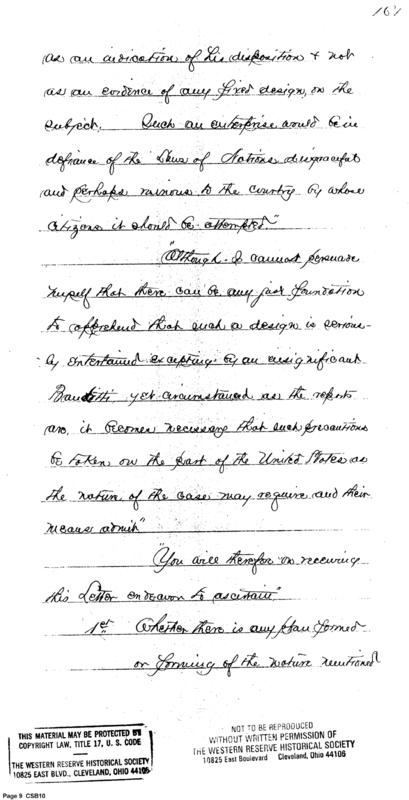 161
as an indication of his disposition & not
as an evidence of any fixed design, on the
subject. Such an enterprise would be in
defiance of the Laws of Nations disgraceful
and perhaps ruinous to the country by whose
citizens it should be attempted."
"Although I cannot persuade
myself that there can be any just foundation
to apprehend that such a design is serious-
ly entertained excepting by an insignificant
Banditti, yet circumstanced as the reports
are, it becomes necessary that such precautions
be taken on the part of the United States as
the nature of the case may require and their
means admit"
"You will therefor on receiving
this Letter endeavor to ascertain"
1st Whether there is any plan formed
or forming of the nature mentioned
THIS MATERIAL MAY BE PROTECTED BY
COPYRIGHT LAW, TITLE 17, U. S. CODE
THE WESTERN RESERVE HISTORICAL SOCIETY
10825 EAST BLVD., CLEVELAND, OHIO 44106
NOT TO BE REPRODUCED
WITHOUT WRITTEN PERMISSION OF
THE WESTERN RESERVE HISTORICAL SOCIETY
10825 East Boulevard Cleveland, Ohio 44106
Page 9 CSB10